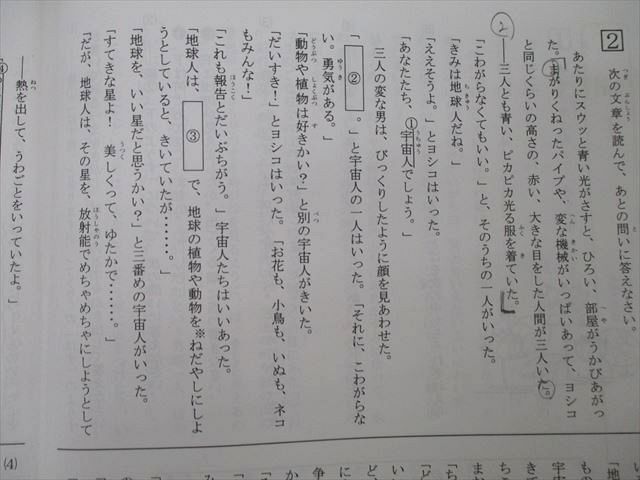 2
次の文章を読んで、あとの問いに答えなさい。
あたりにスウッと青い光がさすと、ひろい、部屋がうかびあがっ
た。まがりくねったパイプや、変な機械がいっぱいあって、ヨシコ
と同じくらいの高さの、赤い、大きな目をした人間が三人いた。
――三人とも青い、ピカピカ光る服を着ていた。
「こわがらなくてもいい。」と、そのうちの一人がいった。
「きみは地球人だね。」
「ええそうよ。」とヨシコはいった。
「あなたたち、①宇宙人でしょう。」
三人の変な男は、びっくりしたように顔を見あわせた。
「 ② 。」と宇宙人の一人はいった。「それに、こわがらな
い。勇気がある。」
「動物や植物は好きかい？」と別の宇宙人がきいた。
「だいすき！」とヨシコはいった。「お花も、小鳥も、いぬも、ネコ
もみんな！」
「これも報告とだいぶちがう。」宇宙人たちはいいあった。
「地球人は、 ③ で、地球の植物や動物を※ねだやしにしよ
うとしていると、きいていたが……。」
「地球を、いい星だと思うかい？」と三番めの宇宙人がいった。
「すてきな星よ！　美しくって、ゆたかで……。」
「だが、地球人は、その星を、放射能でめちゃめちゃにしようとして
――熱を出して、うわごとをいっていたよ。」
(4)